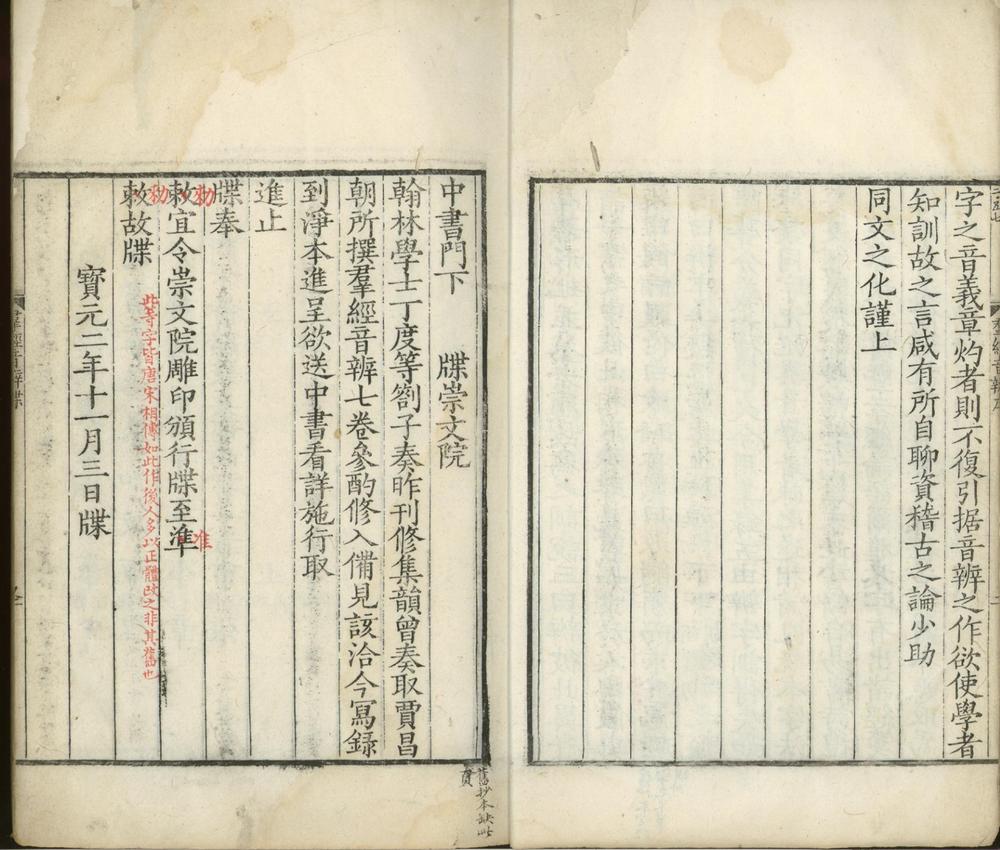 字之音義章灼者則不復引据音辨之作欲使學者
知訓故之言咸有所自聊資稽古之論少助
同文之化謹上
中書門下　牒崇文院
翰林學士丁度等劄子奏昨刊修集韻曾奏取賈昌
朝所撰羣經音辨七卷參酌修入備見該洽今寫錄
到淨本進呈欲送中書看詳施行取
進止
牒奉
敕宜令崇文院雕印頒行牒至準
敕故牒
寶元二年十一月三日牒
勑
准
勑
此等字皆唐宋相傳如此作後人多以正體改之非其舊也
舊抄本缺此
頁
羣經音辨牒